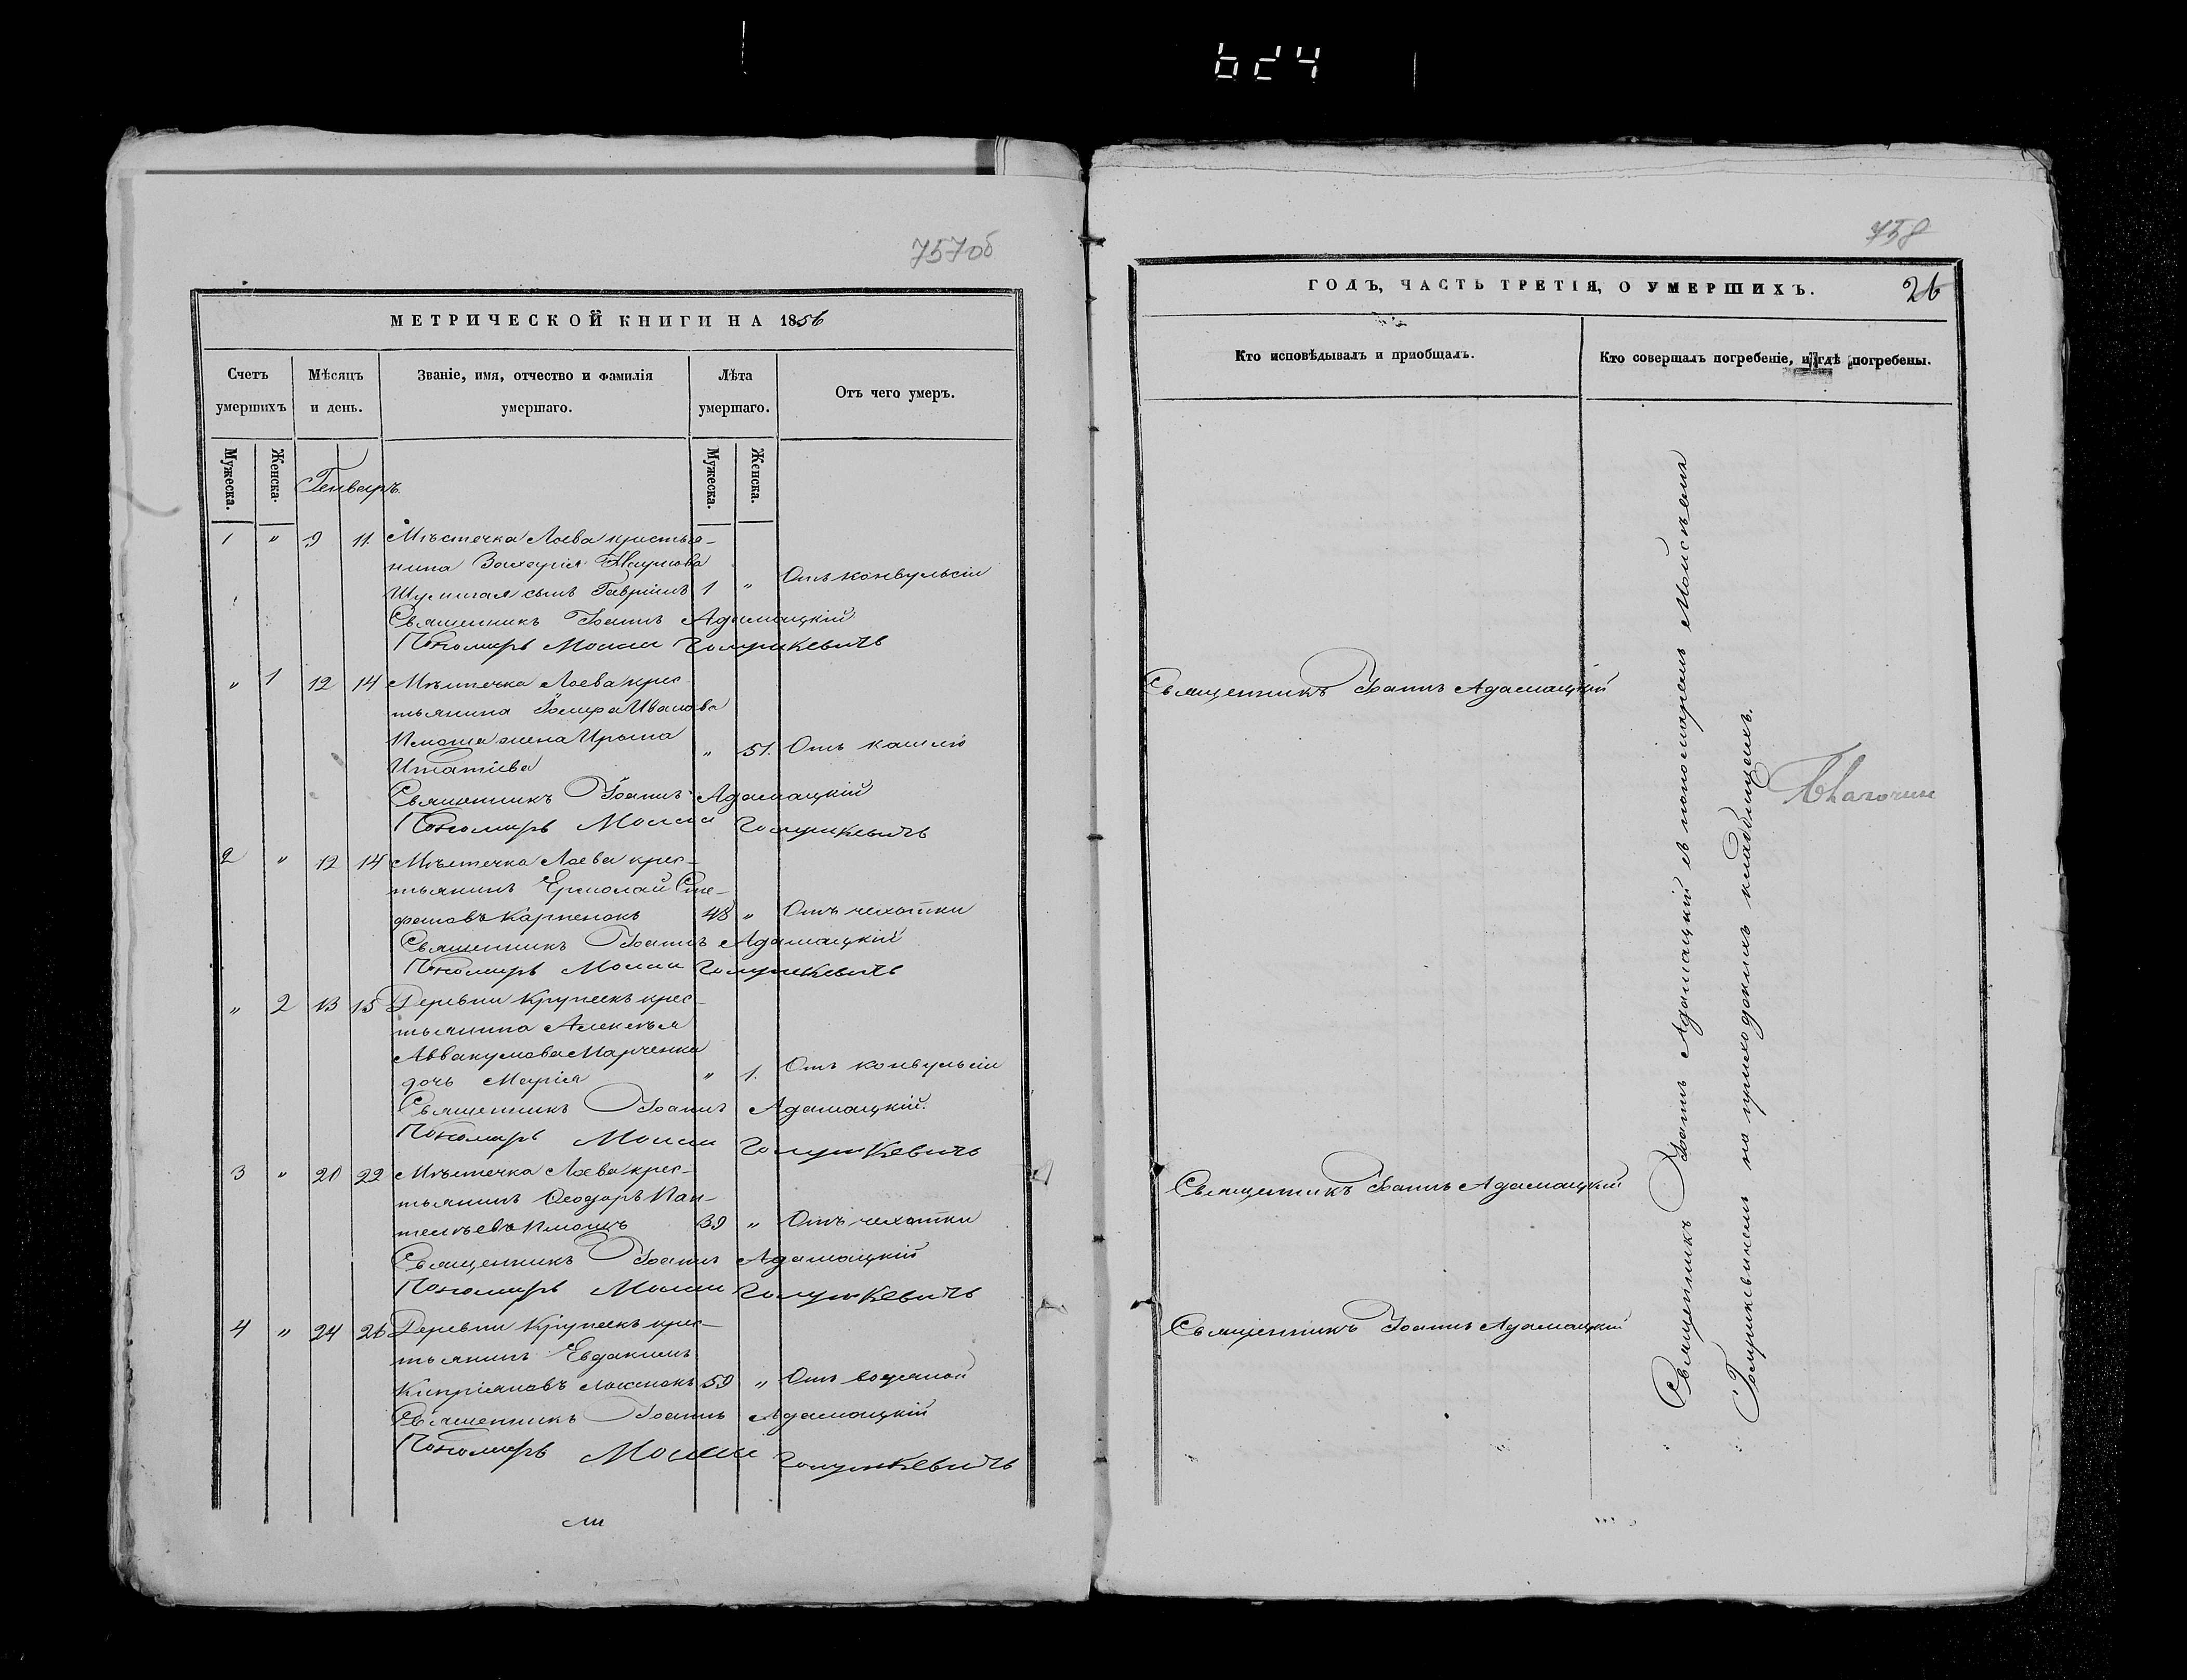 624
757об
МЕТРИЧЕСКОЙ КНИГИ НА 1856
Счетъ умершихъ
Мѣсяцъ и день.
Званіе, имя, отчество и фамилія умершаго.
Лѣта умершаго.
Отъ чего умеръ.
Мужеска.
Женска.
Мужеска.
Женска.
Генварь
1 " 9 11 Мѣстечка Лоева крестья-
нина Захарія Наумова
Шумигая сынъ Гавріилъ 1 " Отъ конвульсіи
Священникъ Іоаннъ Адамацкій
Пономарь Моисей Голушкевичъ
" 1 12 14 Мѣстечка Лоева крес-
тьянина Іосифа Иванова
жена Ирина " 51. Отъ кашлю
Игнатіева
Священникъ Іоаннъ Адамацкій
Пономарь Моисей Голушкевичъ
2 " 12 14 Мѣстечка Лоева крес-
тьянинъ Ермолай Сте-
фановъ Карпенокъ 48 " Отъ чахотки
Священникъ Іоаннъ Адамацкій
Пономарь Моисей Голушкевичъ
" 2 13 15 Деревни Крупеекъ крес-
тьянина Алексѣя
Аввакумова Марченка
дочь Марія " 1. Отъ конвульсіи
Священникъ Іоаннъ Адамацкій.
Пономарь Моисей Голушкевичъ
3 " 20 22 Мѣстечка Лоева крес-
тьянинъ Ѳеодоръ Пан-
телѣевъ 39 " Отъ чахотки
Священникъ Іоаннъ Адамацкій
Пономарь Моисей Голушкевичъ
4 " 24 26 Деревни Крупеекъ крес-
тьянинъ Евдакимъ
Кипріановъ 59 " Отъ водяной
Священникъ Іоаннъ Адамацкій
Пономарь Моисей Голушкевичъ
758
ГОДЪ, ЧАСТЬ ТРЕТІЯ, О УМЕРШИХЪ.
26
Кто исповѣдывалъ и пріобщалъ.
Кто совершалъ погребеніе, и гдѣ погребены.
Священникъ Іоаннъ Адамацкій
Священникъ Іоаннъ Адамацкій
Священникъ Іоаннъ Адамацкій
Священникъ Іоаннъ Адамацкій съ пономаремъ Моисеемъ
Голушкевичемъ на приходскихъ кладбищахъ.